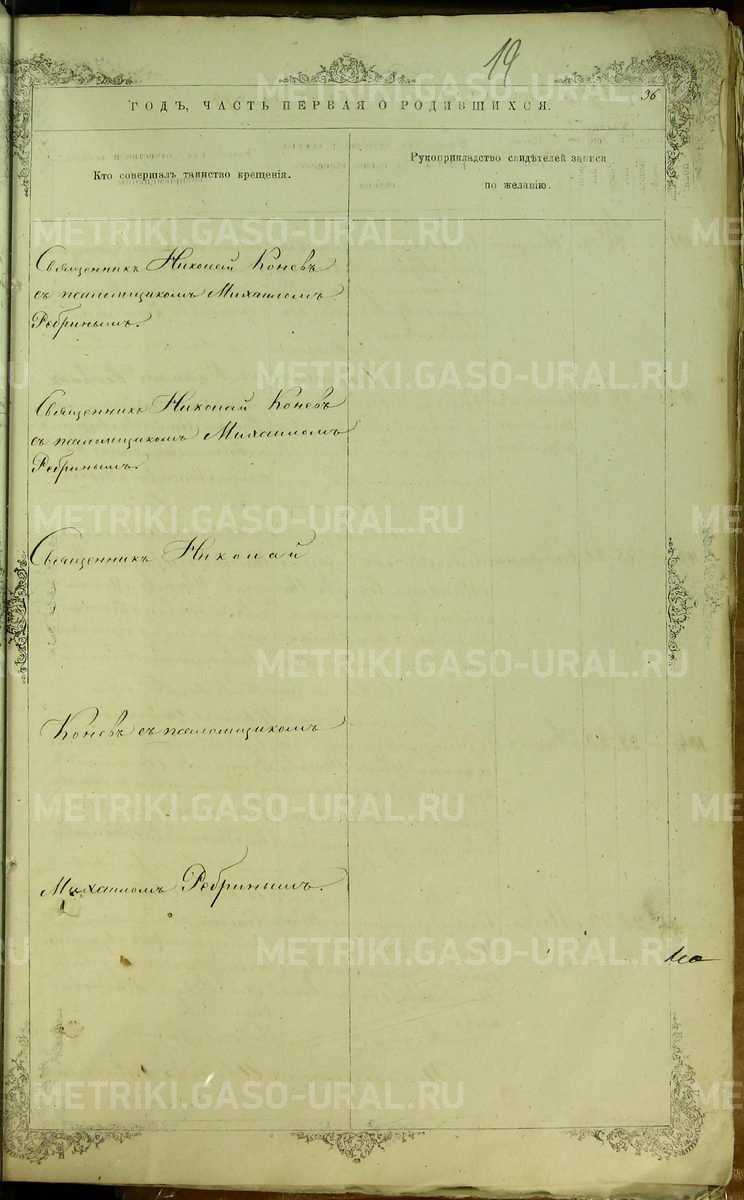 19
36
ГОДЪ, ЧАСТЬ ПЕРВАЯ О РОДИВШИХСЯ.
Кто совершалъ таинство крещенія.
Рукоприкладство свидѣтелей записи
по желанію.
Священникъ Николай Коневъ
съ псаломщикомъ Михаиломъ
Ребринымъ.
Священникъ Николай Коневъ
съ псаломщикомъ Михаиломъ
Ребринымъ.
Священникъ Николай
Коневъ съ псаломщикомъ
Михаиломъ Ребринымъ.
METRIKI.GASO-URAL.RU